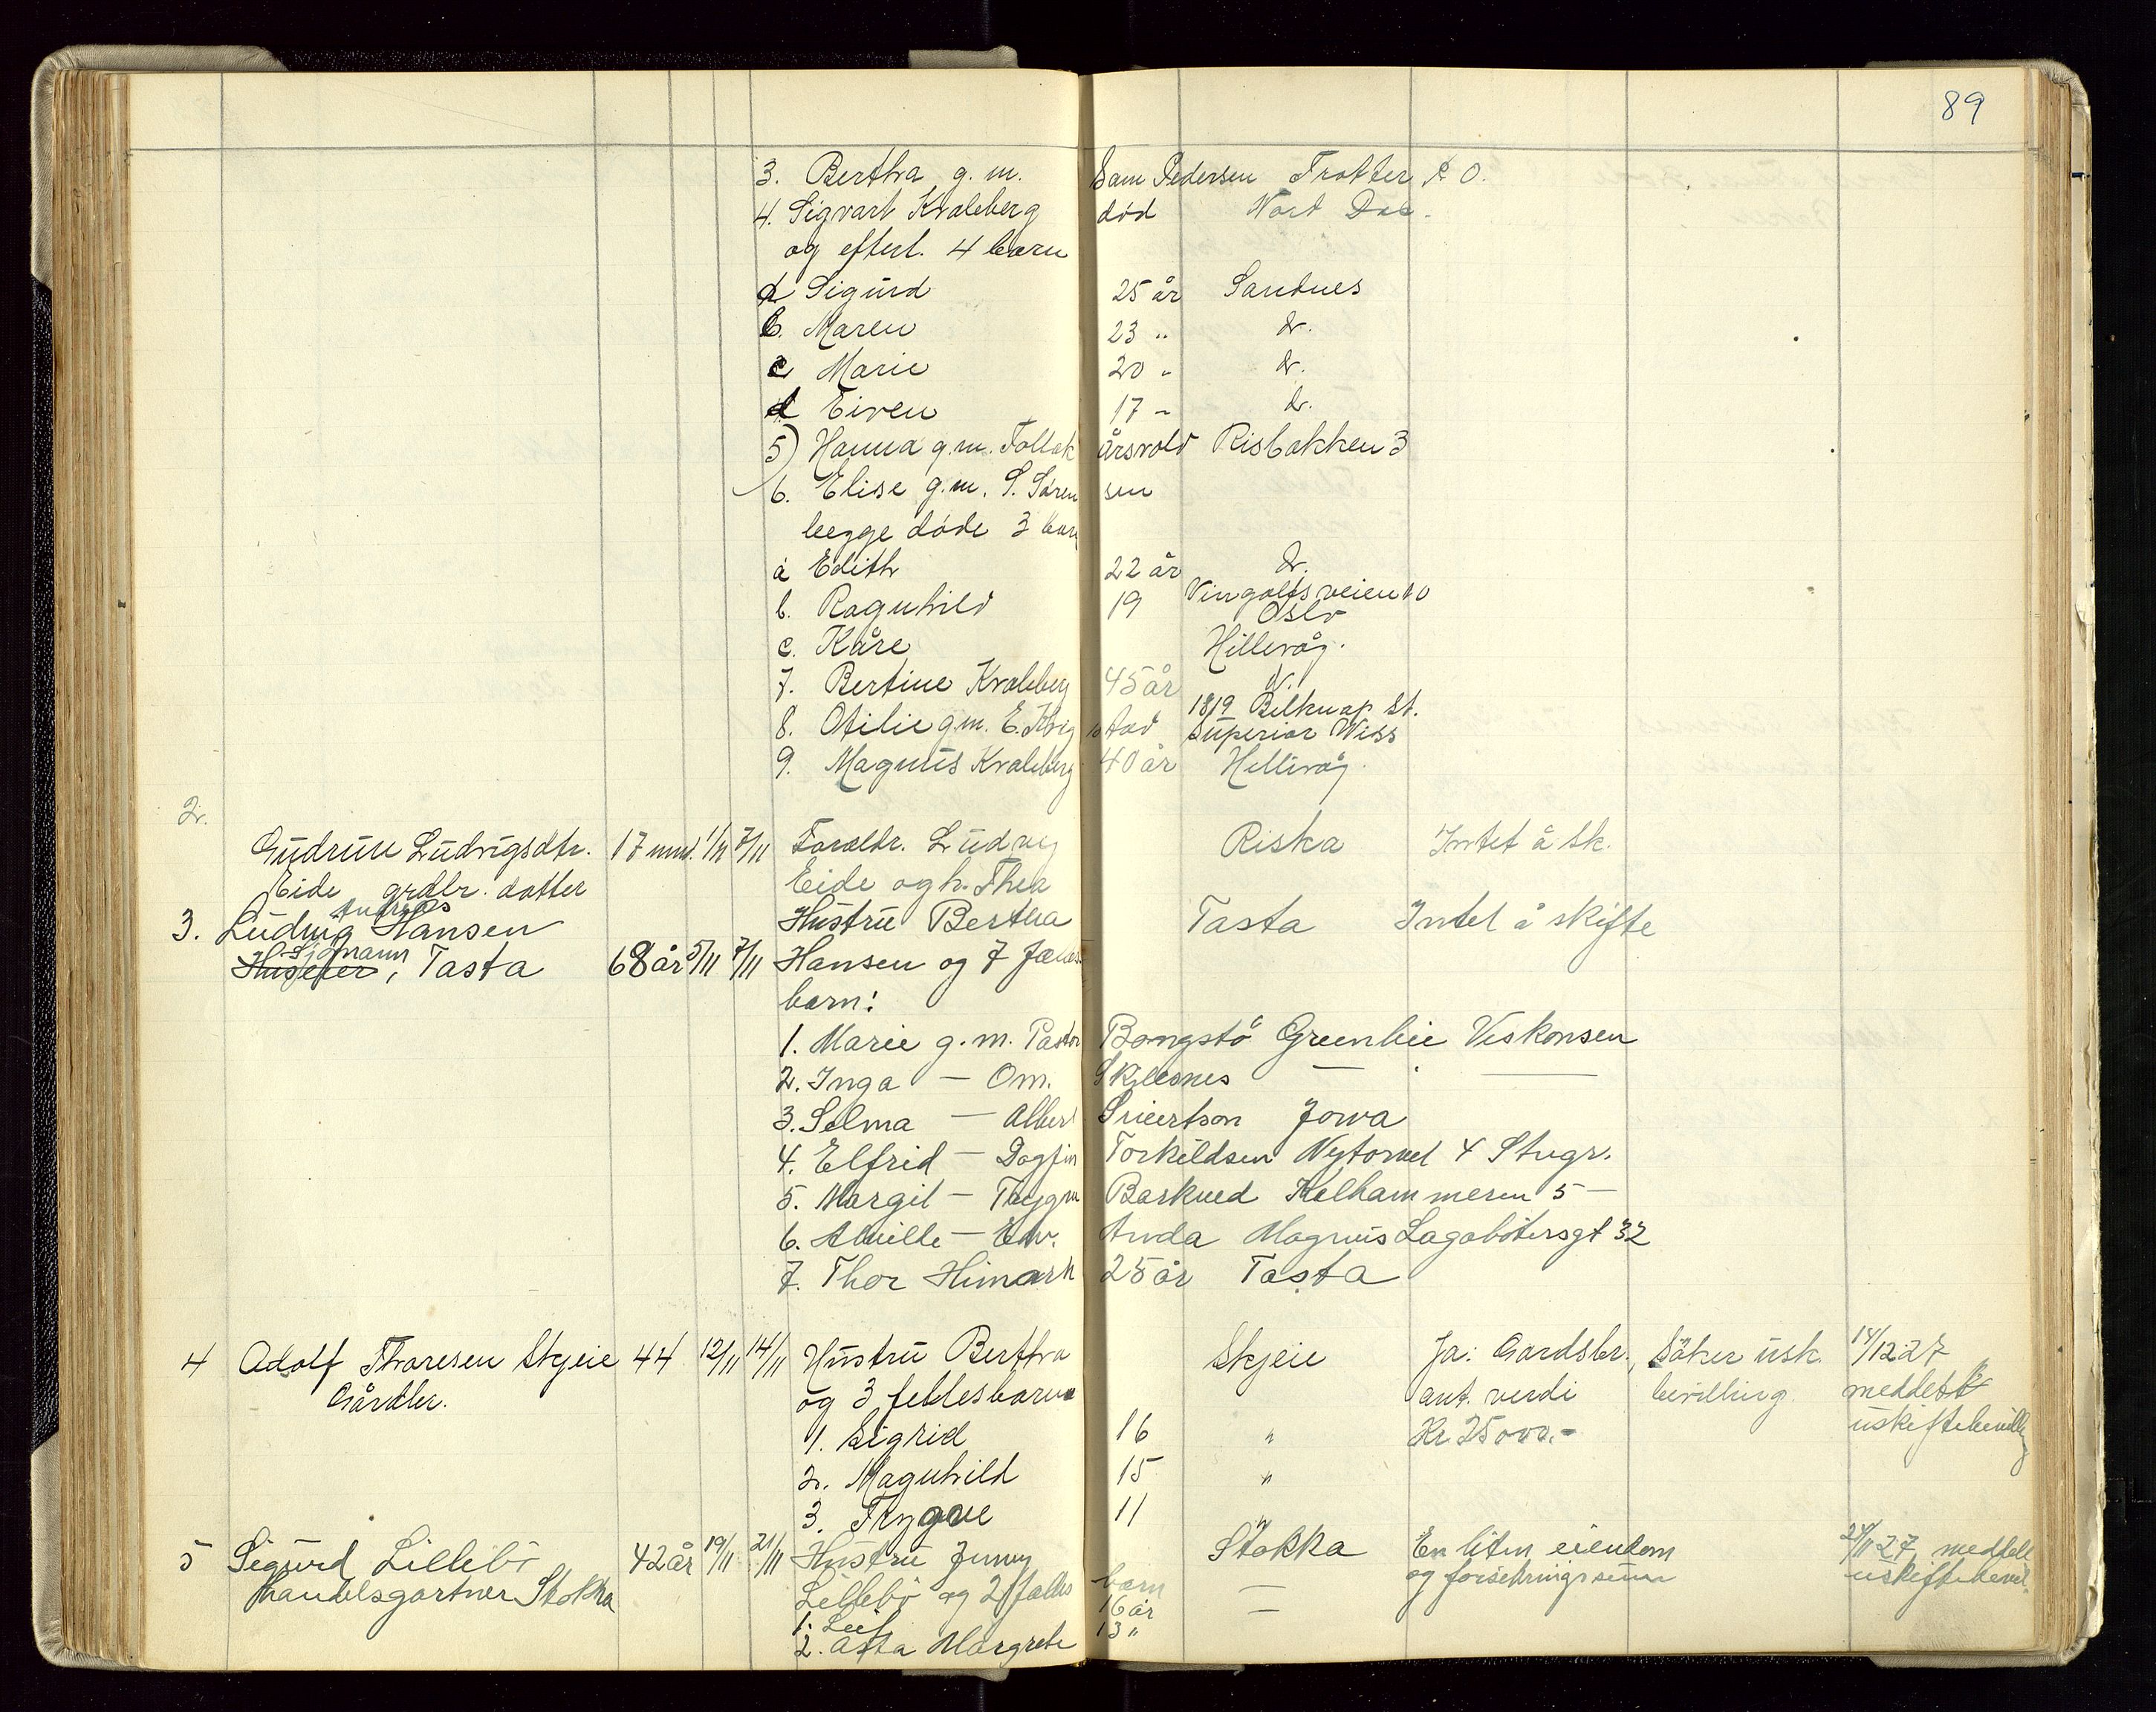 89
3. Bertha g. m. Sam Pedersen Trotter P. O.
4. Sigvart Kvaleberg død Nort Dac.
og efterl. 4 barn
a Sigurd 25 år Sandnes
b. Maren 23 " do.
c Marie 20 " do.
d Eiven 17 " do.
5) Hanna g. m. Tollak Årsvold Risbakken 3
6. Elise g. m. S. Sørensen
begge døde 3 barn
a Edith 22 år do.
b. Ragnhild 19 Vingolfsveien 10 Oslo
c. Kåre Hillevåg.
7. Bertine Kvaleberg 45 år do.
8. Otilie g. m. E. 1819 Belknap St. Superior Wiss
9. Magnus Kvaleberg 40 år Hillevåg.
2. Gudrun Ludvigsdtr. 17 mnd. 1/11 7/11 Foreldr. Ludvig Riska Intet å sk.
Eide grdbr. datter Eide og h. Thea
3. Ludvig Andreas Hansen Hustru Bertha Tasta Intet å skifte
Huseier, Sjømann Tasta 68 år 5/11 7/11 Hansen og 7 fælles
barn:
1. Marie g. m. Pastor Bongstø Greenbie Viskonsen
2. Inga — Om. Skjlesnes — —
3. Selma — Albert Sivertson Jowa
4. Elfrid — Dagfin Torkildsen Nytorvet 4 Stvgr.
5. Margit — Trygve Barkved Kelhammeren 5 —
6. Alvilde — Edv. Anda Magnus Lagabøtersgt 32
7. Thor Himark 25 år Tasta
4 Adolf Thoresen Skjeie 44 12/11 14/11 Hustru Bertha Skjeie Ja: Gardsbr., Söker usk. 14/12 27
Gårdbr. og 3 fellesbarn ant. verdi bevilling. meddelt
1. Sigrid 16 " Kr 25000.- uskiftebevillg
2. Magnhild 15 "
3. Trygve 11 "
5 Sigurd Lillebø 42 år 19/11 21/11 Hustru Jenny Stokka En liten eiendom 24/11 27 meddelt
Handelsgartner Stokka Lillebø og 2 fælles barn — og forsikringssum uskiftebevil.
1. Leif 16 år —
2. Asta Margrete 13 "